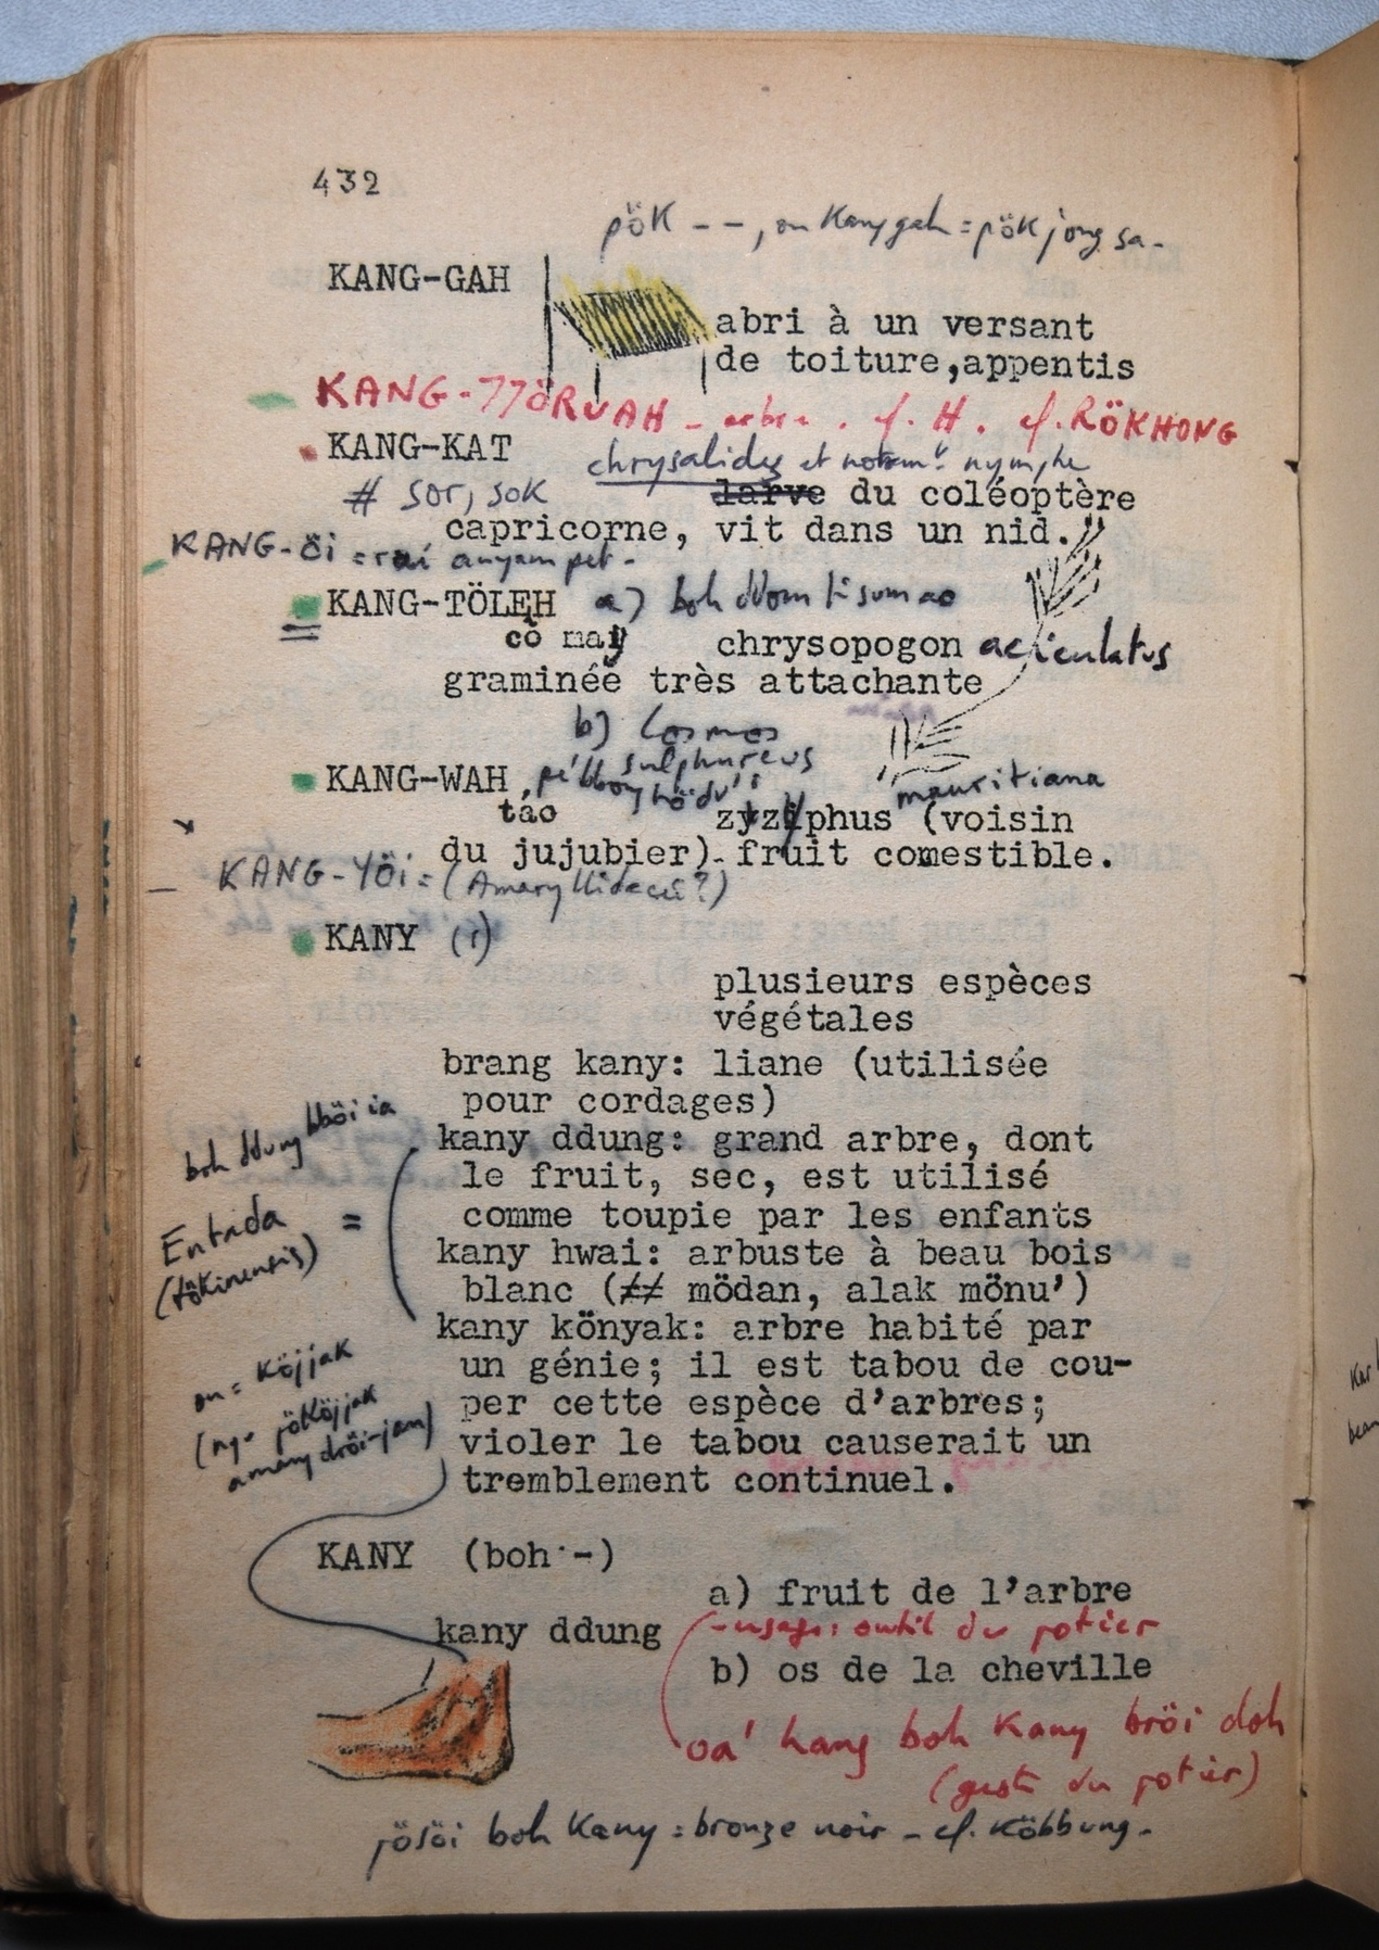 432
pök - - , on Kanygah = pök jong sa -
KANG-GAH
abri à un versant
de toiture,appentis
arbre . cf. H. cf. RÖKHONG
KANG-KAT
chrysalides et notamt nymphe
# sor, sok
larve du coléoptère
capricorne, vit dans un nid.
KANG-öi = rai anyam pet -
KANG-TÖLEH a) boh ddom ti sumao
cò may
chrysopogon aciculatus
graminée très attachante
b) Cosmos
sulphureus
KANG-WAH
mauritiana
tao
zyziphus (voisin
du jujubier). fruit comestible.
KANG-YÖi = (Amaryllidacée?)
KANY (1)
plusieurs espèces
végétales
brang kany: liane (utilisée
pour cordages)
boh ddung bböi ia
kany ddung: grand arbre, dont
le fruit, sec, est utilisé
comme toupie par les enfants
Entada =
(tökinensis)
kany hwai: arbuste à beau bois
blanc (≠≠ mödan, alak mönu')
kany könyak: arbre habité par
un génie; il est tabou de cou-
per cette espèce d'arbres;
violer le tabou causerait un
tremblement continuel.
on = köjjak
KANY (boh -)
a) fruit de l'arbre
kany ddung
- usage: outil du potier
b) os de la cheville
oa' hang boh Kany bröi doh
(geste du potier)
jösöi boh Kany = bronze noir - cf. Köbbung -